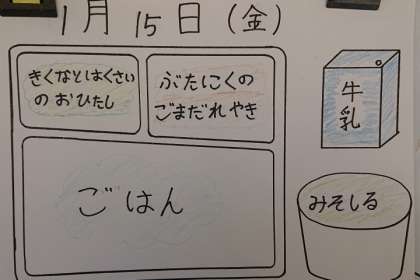 1月15日(金)
きくなとはくさい
のおひたし
ぶたにくの
ごまだれやき
牛乳
ごはん
みそしる